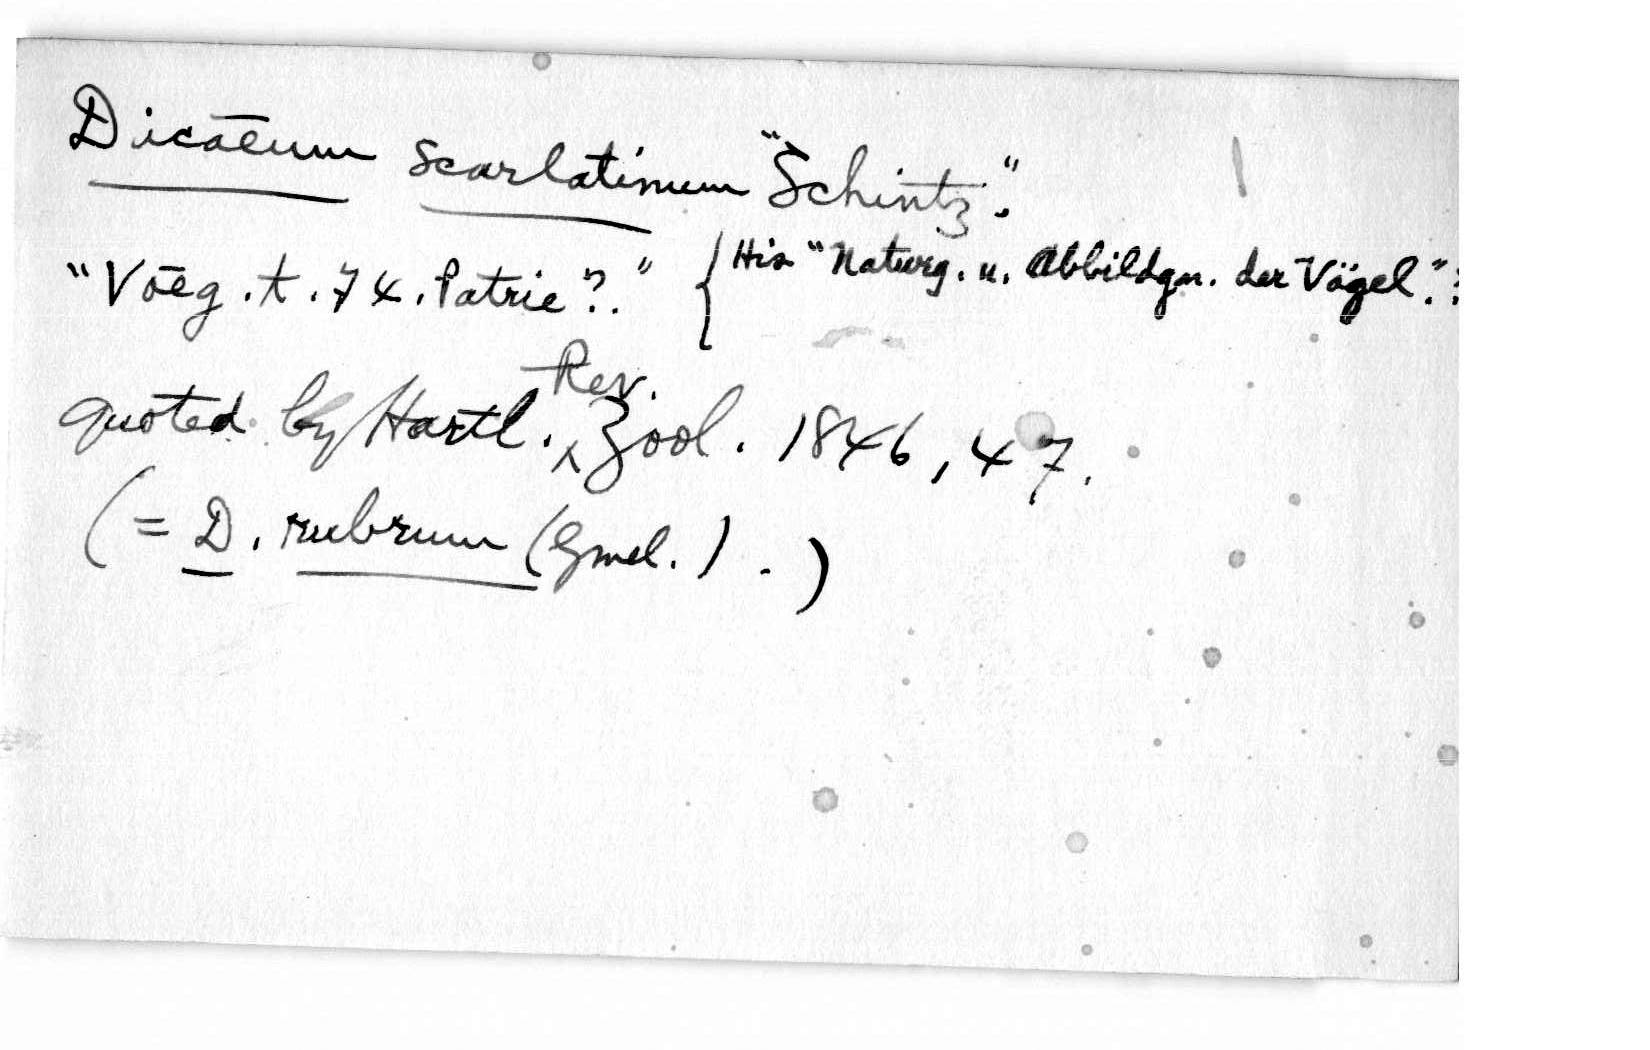 Dicaeum scarlatinum "Schintz".
"Voeg. t. 74. Patrie?." { His "Naturg. u. Abbildgn. der Vögel."?
quoted by Hartl. Rev. Zool. 1846, 47.
(= D. rubrum (Gmel.). )